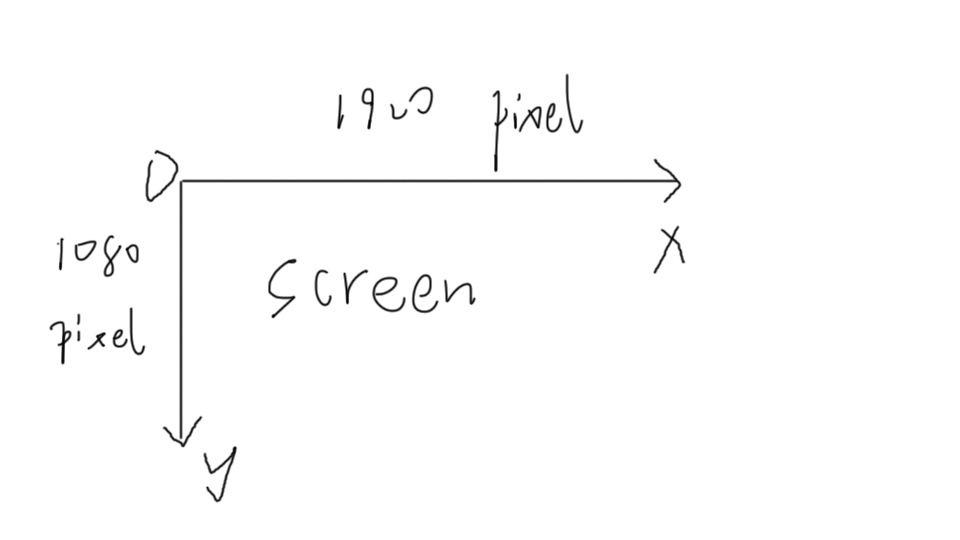 1920 pixel
0
X
1080
pixel
Screen
y